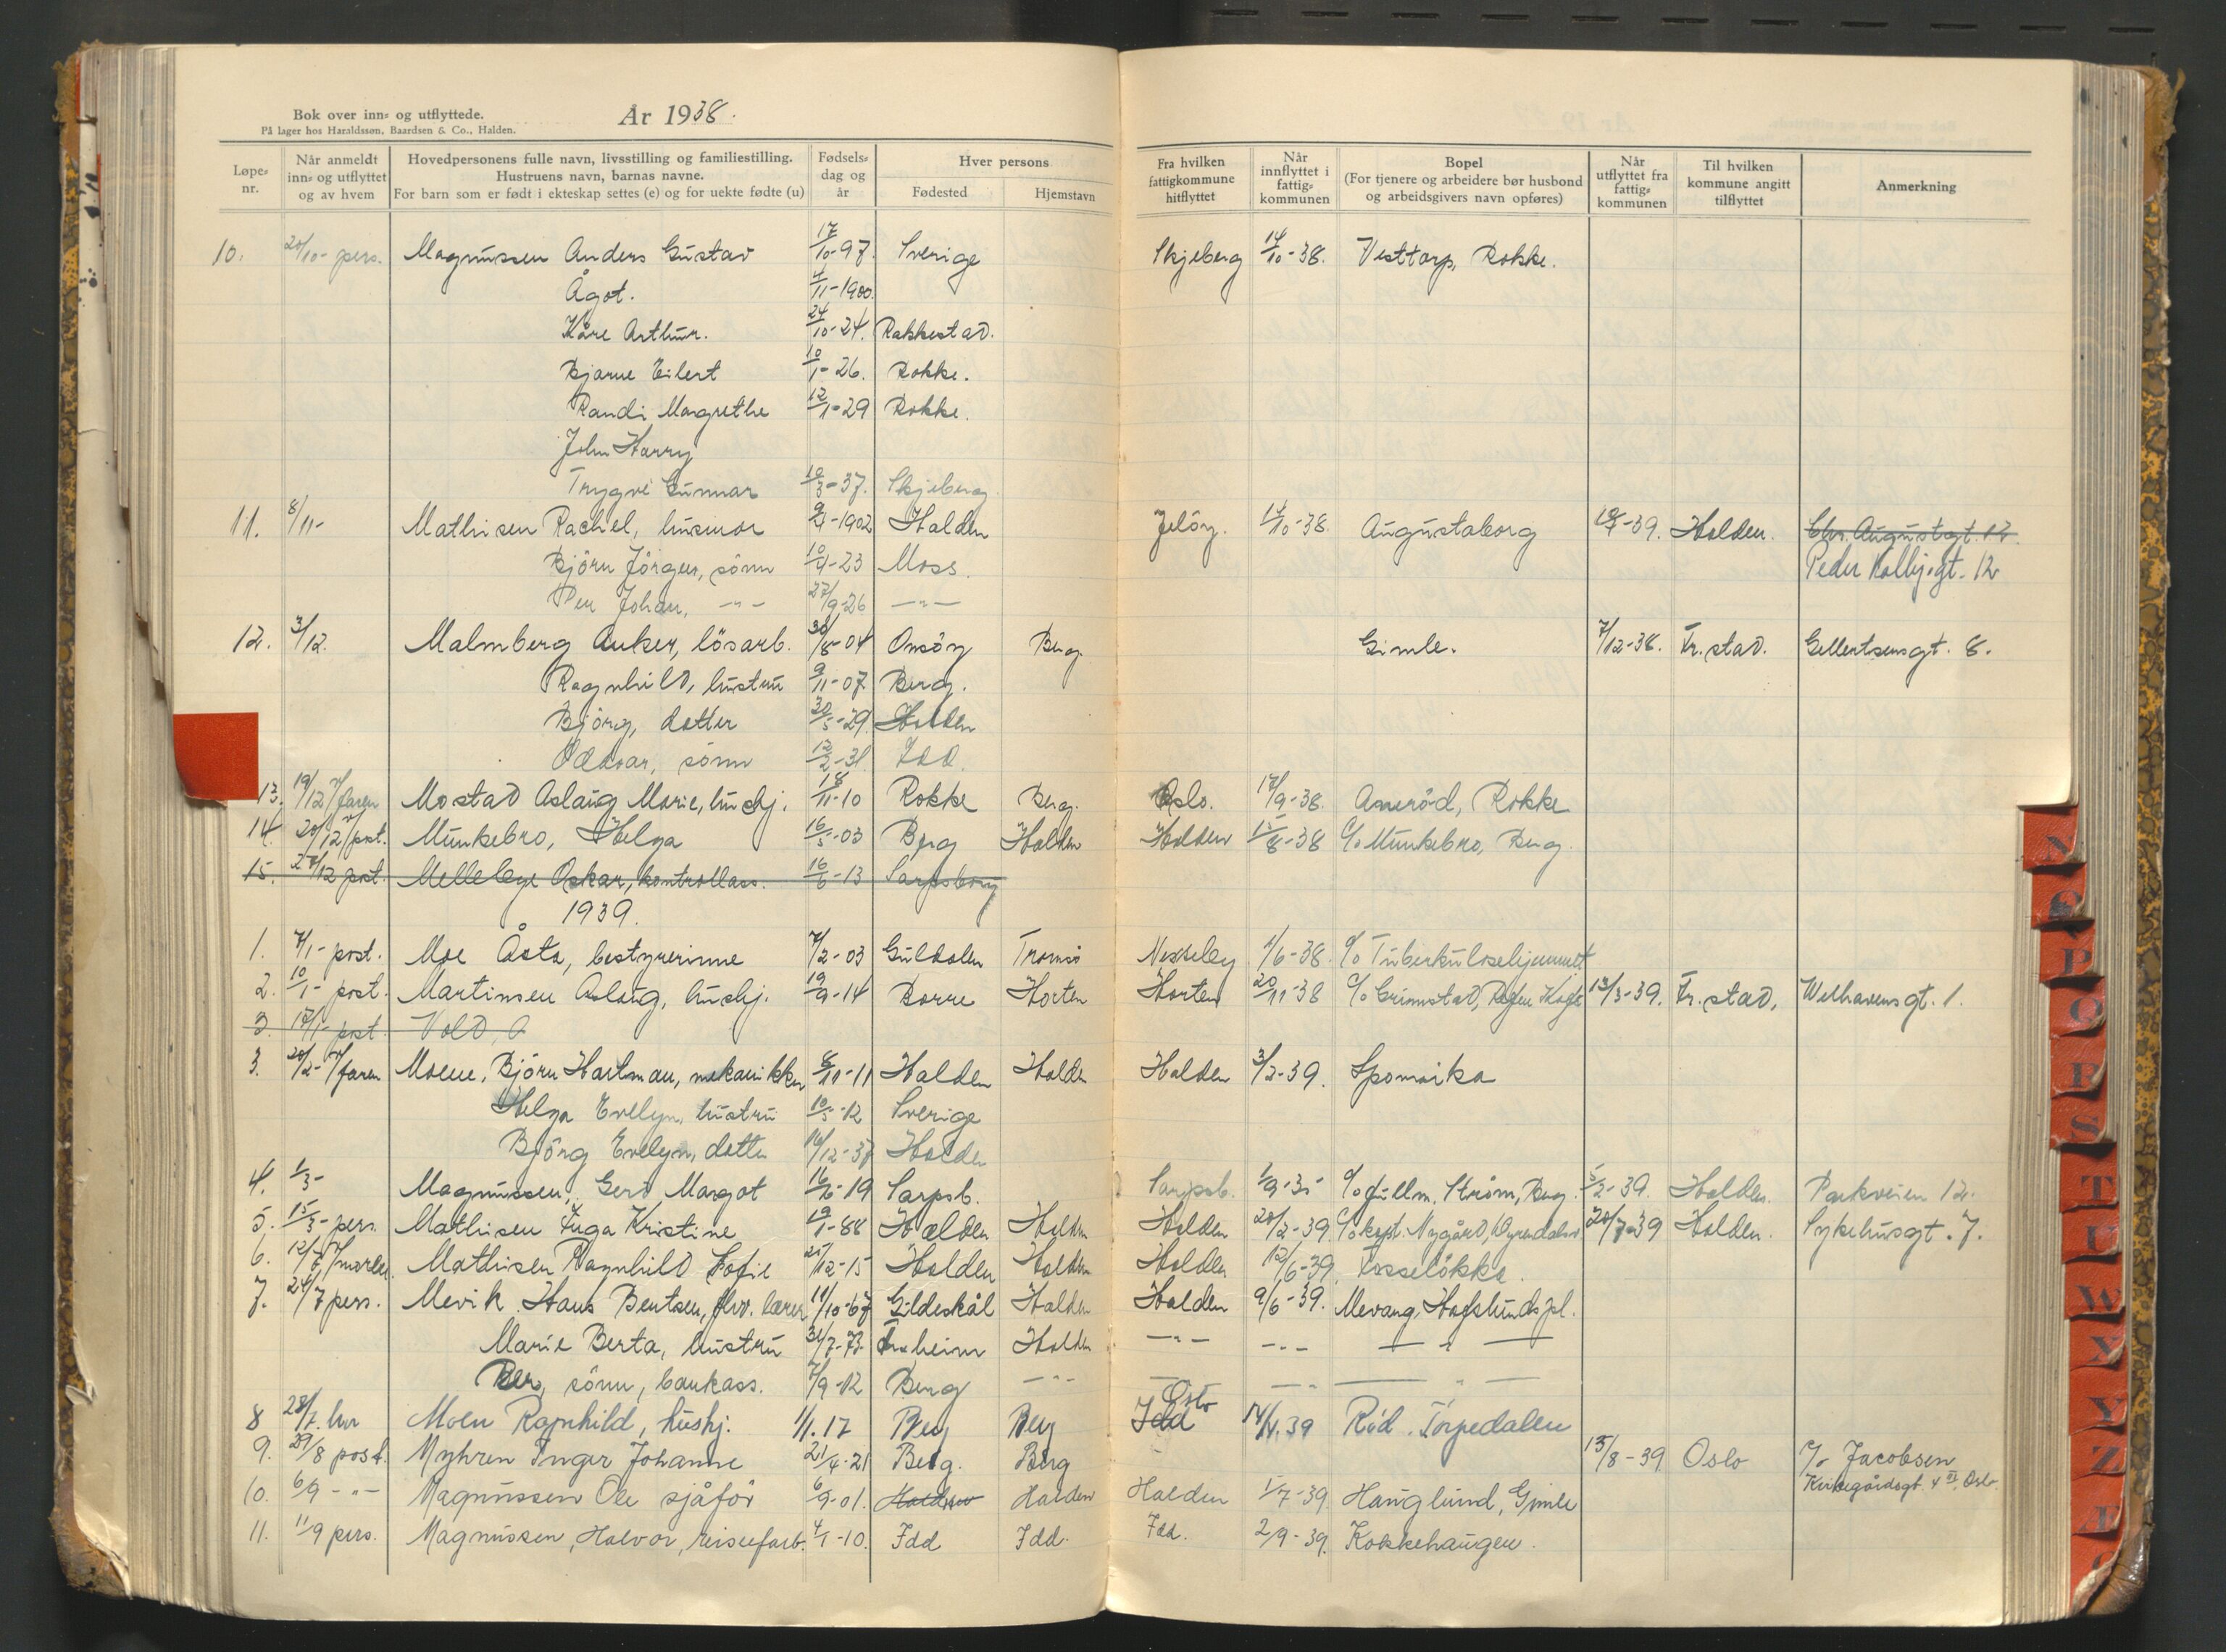 Bok over inn- og utflyttede. År 1938.
På lager hos Haraldssøn, Baardsen & Co., Halden.
Løpe-nr. Når anmeldt inn- og utflyttet og av hvem Hovedpersonens fulle navn, livsstilling og familiestilling. Hustruens navn, barnas navne. For barn som er født i ekteskap settes (e) og for uekte fødte (u) Fødsels-dag og år Hver persons Fødested Hjemstavn Fra hvilken fattigkommune hitflyttet Når innflyttet i fattig-kommunen Bopel (For tjenere og arbeidere bør husbond og arbeidsgivers navn opføres) Når utflyttet fra fattig-kommunen Til hvilken kommune angitt tilflyttet Anmerkning
10. 20/10- pers. Magnussen Anders Gustav 17/10-97. Sverige Skjeberg 14/10-38. Vesttorp, Rokke.
Ågot. 4/11-1900.
Kåre Arthur. 24/10-24. Rakkestad.
Bjarne Eilert 10/1-26. Rokke.
Randi Margrethe 12/1-29 Rokke.
John Harry
Trygve Gunnar 10/3-37. Skjeberg
11. 8/11- Mathisen Rachel, husmor 1902 Halden Jelöy. 14/10-38. Augustaborg -39. Halden. Chr. Augustsgt. 12.
Björn Jörgen, sönn 10/4-23 Moss. Peder Kolbj.gt. 12
Per Johan, -"- 27/9-26 -"-
12. 3/12. Malmberg Anker, lösarb. 30/8-04 Onsöy Berg Gimle. 7/12-38. Fr.stad. Gellertsensgt. 8.
Ragnhild, hustru 9/11-07 Berg.
Björg, datter 30/5-29. Halden
Oddvar, sönn 12/2-31 Idd.
13. 19/12 v/faren Mostad Aslaug Marie, hushj. 18/11-10 Rokke Berg. Oslo. 17/9-38. Aseröd, Rokke
14. 20/12 v/post. Munkebro, Helga 16/5-03 Berg Halden Halden 15/8-38 c/o Munkebro, Berg.
15. 28/12 post. Mellebye Oskar, kontrollass. 16/6-13 Sarpsborg
1939.
1. 7/1- post. Moe Åsta, bestyrerinne 7/2-03 Guldalen Tromsö Nesseby 1/6-38. c/o Tuberkulosehjemmet
2. 10/1- post. Martinsen Aslaug, hushj. 19/9-14 Borre Horten Horten 20/11-38 c/o Grimstad, 13/3-39. Fr.stad, Welhavensgt. 1.
3. 17/1- post. Vold, A
3. 20/2- v/faren Moene, Björn Hartman, mekanikker 8/11-11 Halden Halden Halden 3/2-39. Sponvika
Helga Evelyn, hustru 10/5-12 Sverige
Björg Evelyn, datter 16/12-37 Halden
4. 1/3- Magnussen, Gerd Margot 16/6-19 Sarpsb. Sarpsb. 1/9-35 c/o fullm. Ström, Berg. 5/2-39. Halden. Parkveien 12.
5. 15/3- pers. Mathisen Inga Kristine 19/1-88 Halden Halden Halden 20/2-39. c/o kapt. Nygård, 20/7-39 Halden. Sykehusgt. 7.
6. Mathisen Ragnhild Sofie 25/12-15 Halden Halden Halden 12/6-39. Fosselökka.
7. 24/7 pers. Mevik Hans Bentsen, fhv. lærer 11/10-67 Gildeskål Halden Halden 9/6-39. Mevang, Hafslundspl.
Marie Berta, hustru 31/7-73 Halden -"- -"- -"-
Per, sönn, bankass. 7/9-12 Berg -"- -"- -"- -"-
8 28/7. Moen Ragnhild, hushj. 1/1.17 Berg Berg Idd Oslo 14/4.39 Röd. Torpedalen
9. 29/8 post. Myhren Inger Johanne 21/4-21 Berg. Berg 15/8-39 Oslo c/o Jacobsen
Kirkegårdsgt. 4 III, Oslo
10. 6/9 -"- Magnussen Ole sjåför 6/9-01. Halden Halden Halden 1/7-39. Hauglund, Gimle
11. 11/9 pers. Magnussen, Halvor, reisefarb. 4/1-10. Idd Idd. Idd. 2/9-39. Kokkehaugen.
N
O
P
Q
R
S
T
U
W
X
Y
Z